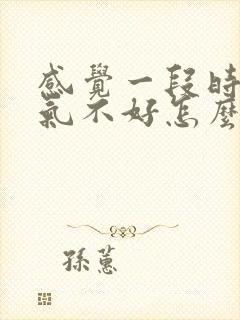 感覺一段時
氣不好怎麼
孫蕙